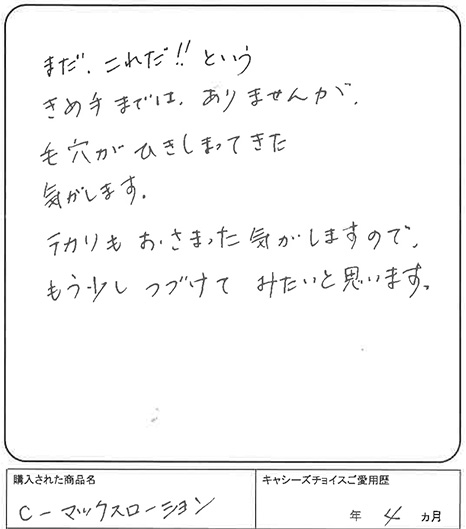 まだ、これだ!!という
きめ手までは、ありませんが、
毛穴がひきしまってきた
気がします。
テカリもおさまった気がしますので、
もう少しつづけてみたいと思います。
購入された商品名
キャシーズチョイスご愛用歴
C－マックスローション
年 4 ヵ月